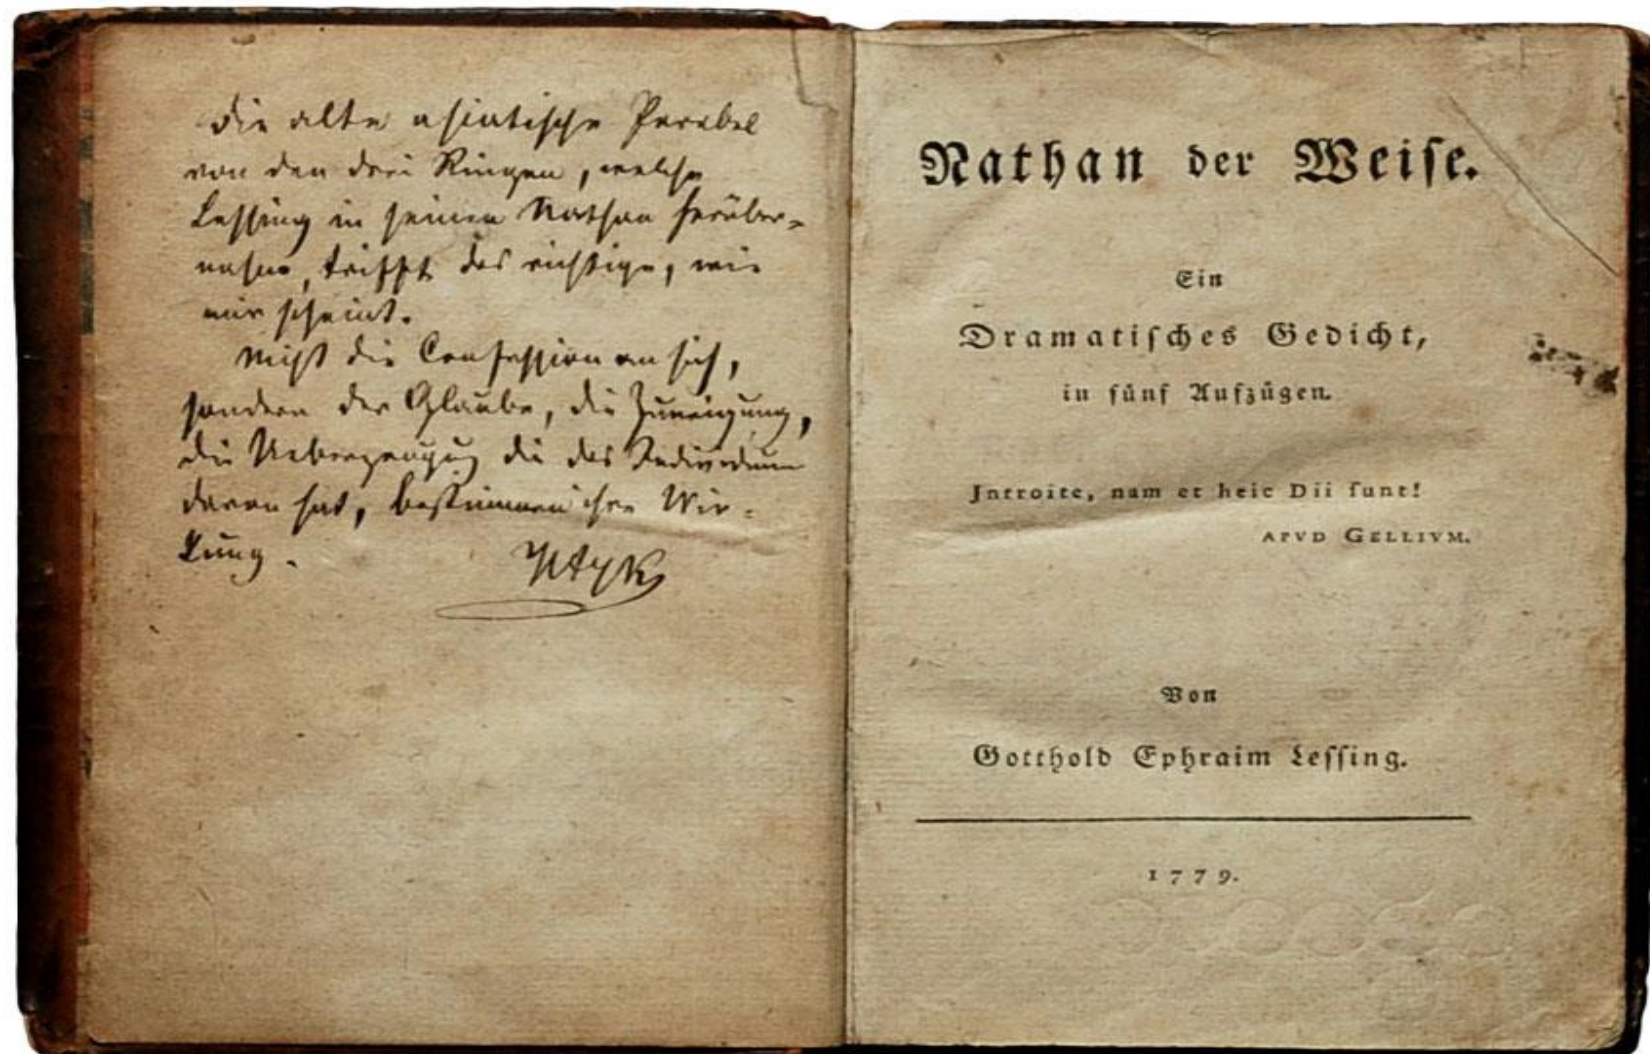 Die alte asiatische Parabel
von den drei Ringen, welche
Lessing in seinen Nathan herüber-
nahm, trifft das richtige, wie
mir scheint.
Nicht die Confession an sich,
sondern der Glaube, die Zuneigung,
die Ueberzeugug die das Individuum
davon hat, bestimmen ihre Wir-
kung.
Nathan der Weiſe.
Ein
Dramatiſches Gedicht,
in fünf Aufzügen.
Introite, nam et heic Dii ſunt!
APVD GELLIVM.
Von
Gotthold Ephraim Leſſing.
1779.